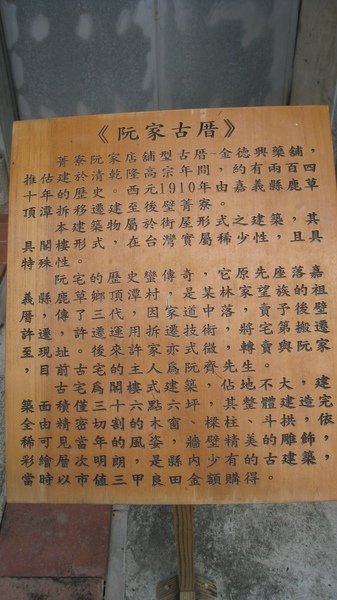 《阮家古厝》
菁寮阮家店舖型古厝-金德興藥舖，
推估建於清乾隆高宗年間，約有兩百四
十年的歷史。西元1910年由嘉義縣鹿草
頂潭拆移遷建至後壁菁寮。
本建築物屬於街屋形式之建築，且其
具樓閣形式，在台灣實屬稀少性，具
特殊性。
阮宅的歷史蠻傳奇，它原先座落嘉
義縣鹿草鄉頂潭村，是某林家望族的祖
厝，傳了三代，因家道中落，賣予後壁
許
至現址。後來許家亦式微，轉賣與阮家
目前古宅為閣樓式建築，佔地不大，建
築面積僅三十六點六坪，其整體建造完
全由
稀可見當年的風姿，樑柱精美的雕飾
彩繪層次明朗，是縣內少有的古建築，
當時以市值三甲良田金額購得。